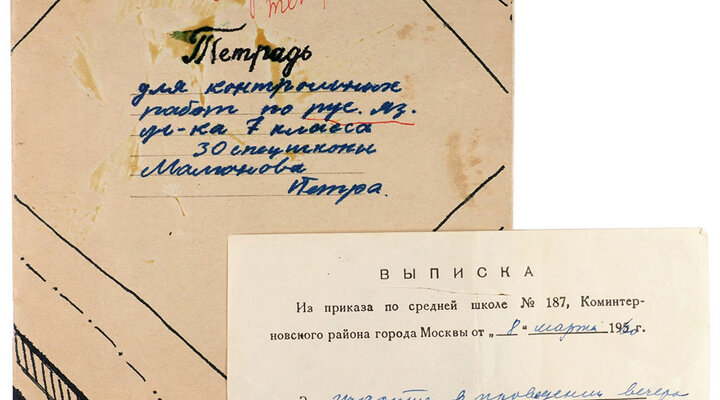 Тетрадь
для контрольных
работ по рус. яз.
уч-ка 7 класса
30 спецшколы
Мамонова
Петра.
ВЫПИСКА
Из приказа по средней школе № 187, Коминтер-
новского района города Москвы от „8“ марта 1960 г.
За участие в проведении вечера